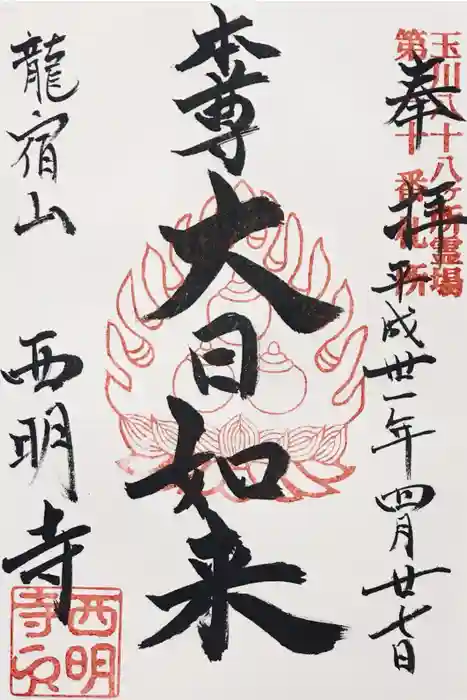 玉川八十八ヶ所霊場
第 十番札所
奉拝
平成卅一年四月廿七日
本尊
大日如来
龍宿山
西明寺
西明
寺印